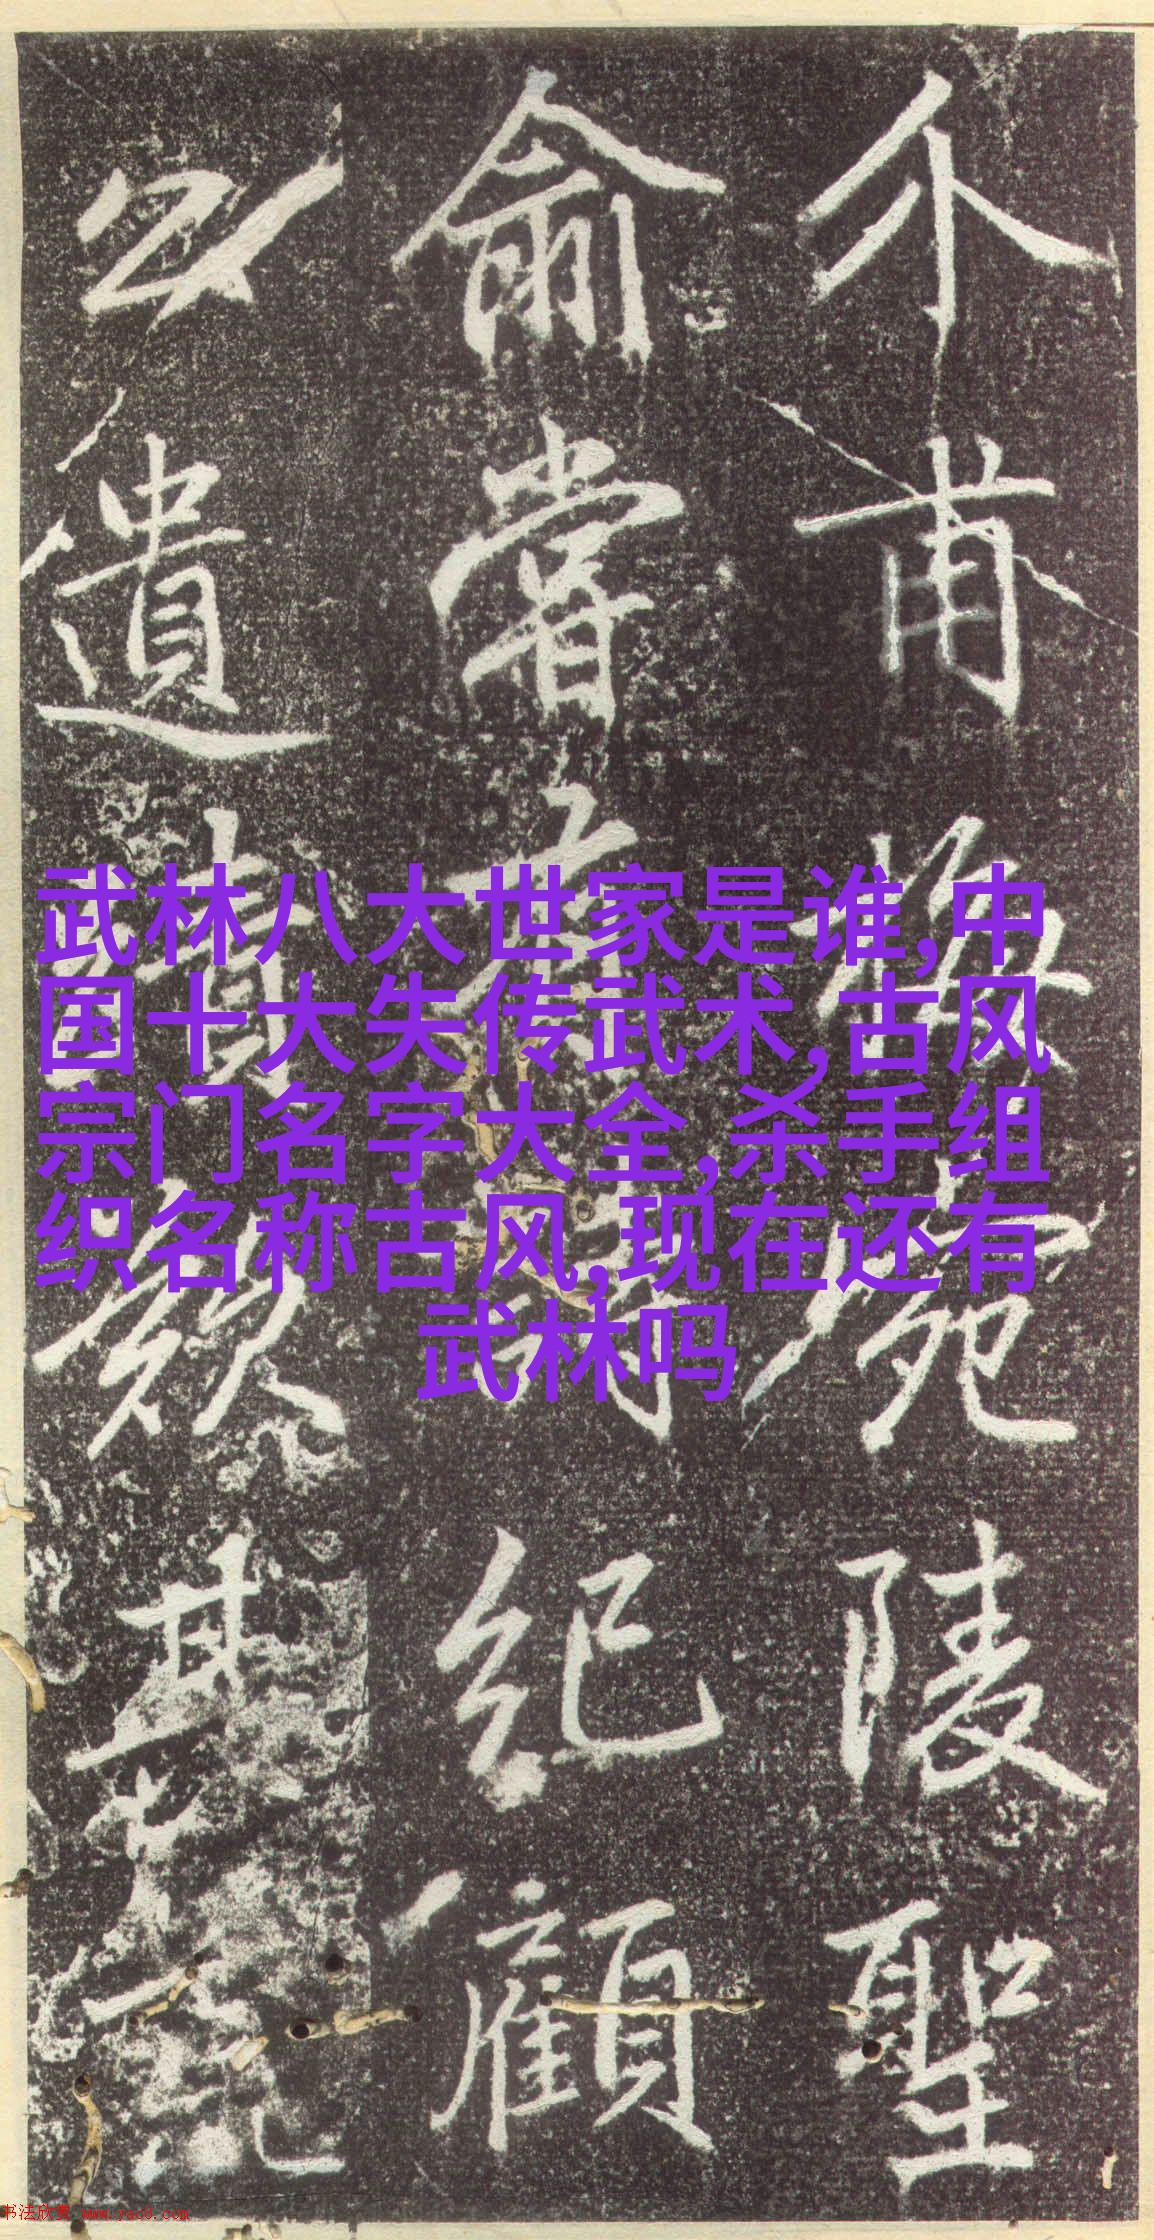 武林八大世家是谁,中
国十大失传武术,古风
宗门名字大全,杀手组
织名称古风,现在还有
武林吗
介甫陵聖
俞嘗紀顧
公遺其
书法欣赏 www.yac8.com